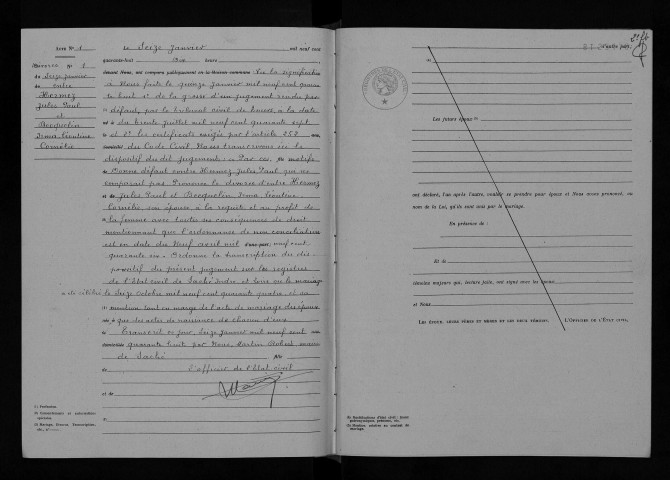 ACTE N° 1
Divorce N° 1
du Seize Janvier
entre
Hormez
Jules Paul
et
Bocquelin
Irma Léontine
Cornélie
Le Seize Janvier mil neuf cent
quarante-huit heure
devant Nous, ont comparu publiquement en la maison commune Vu la signification
à Nous faite le quinze janvier mil neuf cent quarante
huit 1° de la grosse d'un jugement rendu par
défaut, par le tribunal civil de à la date
du trente juillet mil neuf cent quarante sept
et 2° les certificats exigés par l'article 252
du Code Civil Nous transcrivons ici le
dispositif du dit jugement : « Par ces motifs
Donne défaut contre Hormez Jules Paul qui ne
comparait pas Prononce le divorce d'entre Hormez
Jules Paul et Bocquelin Irma Léontine
Cornélie son épouse à la requête et au profit de
la femme avec toutes ses conséquences de droit
mentionnant que l'ordonnance de non conciliation
est en date du Neuf avril mil d'une part ; neuf cent
quarante six. Ordonne la transcription du dis-
positif du présent jugement sur les registres
de l'Etat civil de Saché Indre et Loire où le mariage
a été célébré le Seize Octobre mil neuf cent quarante quatre et sa
mention tant en marge de l'acte de mariage des époux
que des actes de naissance de chacun d'eux
Transcrit ce jour, Seize Janvier mil neuf cent
quarante huit par Nous, Martin Robert maire
de Saché
L'officier de l'Etat civil
et de
(1) Profession.
(3) Mariage, Divorce, Transcription,
d'autre part ;
Les futurs époux
ont déclaré, l'un après l'autre, vouloir se prendre pour époux et Nous avons prononcé, au
nom de la Loi, qu'ils sont unis par le mariage.
En présence de :
Et de
témoins majeurs qui, lecture faite, ont signé avec les époux
et Nous
LES ÉPOUX, LEURS PÈRES ET MÈRES ET LES DEUX TÉMOINS, L'OFFICIER DE L'ÉTAT CIVIL,